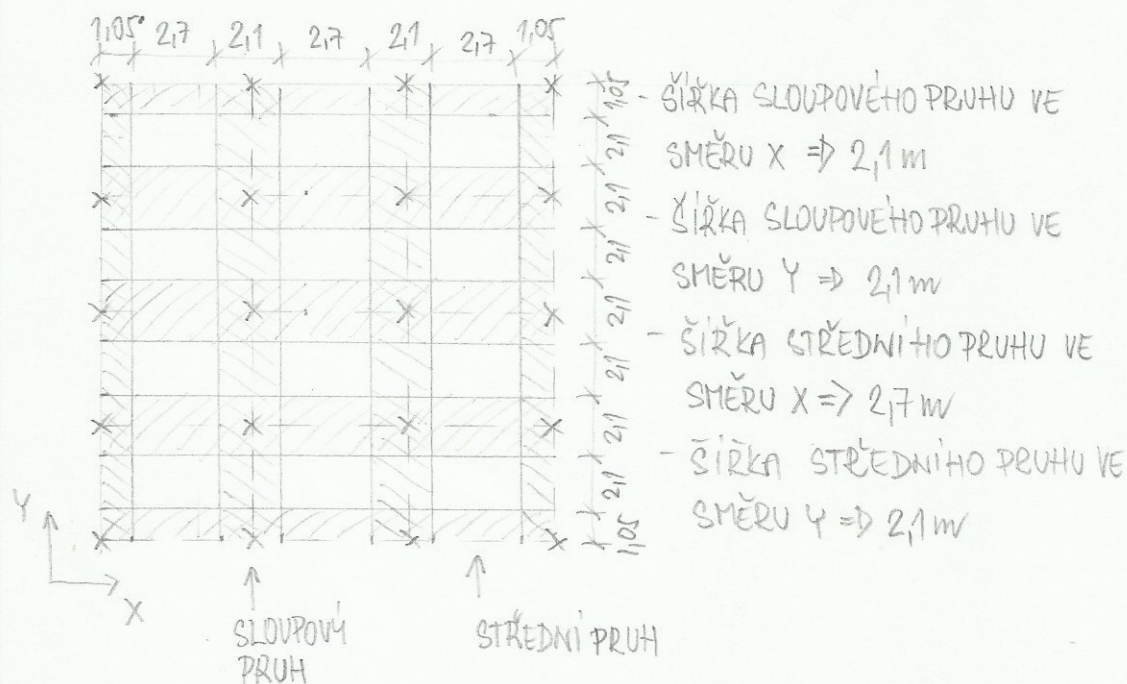 1,05 2,7 2,1 2,7 2,1 2,7 1,05
1,05
2,1
2,1
2,1
2,1
2,1
2,1
2,1
1,05
- ŠÍŘKA SLOUPOVÉHO PRUHU VE
SMĚRU X => 2,1 m
- ŠÍŘKA SLOUPOVÉHO PRUHU VE
SMĚRU Y => 2,1 m
- ŠÍŘKA STŘEDNÍHO PRUHU VE
SMĚRU X => 2,7 m
- ŠÍŘKA STŘEDNÍHO PRUHU VE
SMĚRU Y => 2,1 m
Y
X
SLOUPOVÝ
PRUH
STŘEDNÍ PRUH